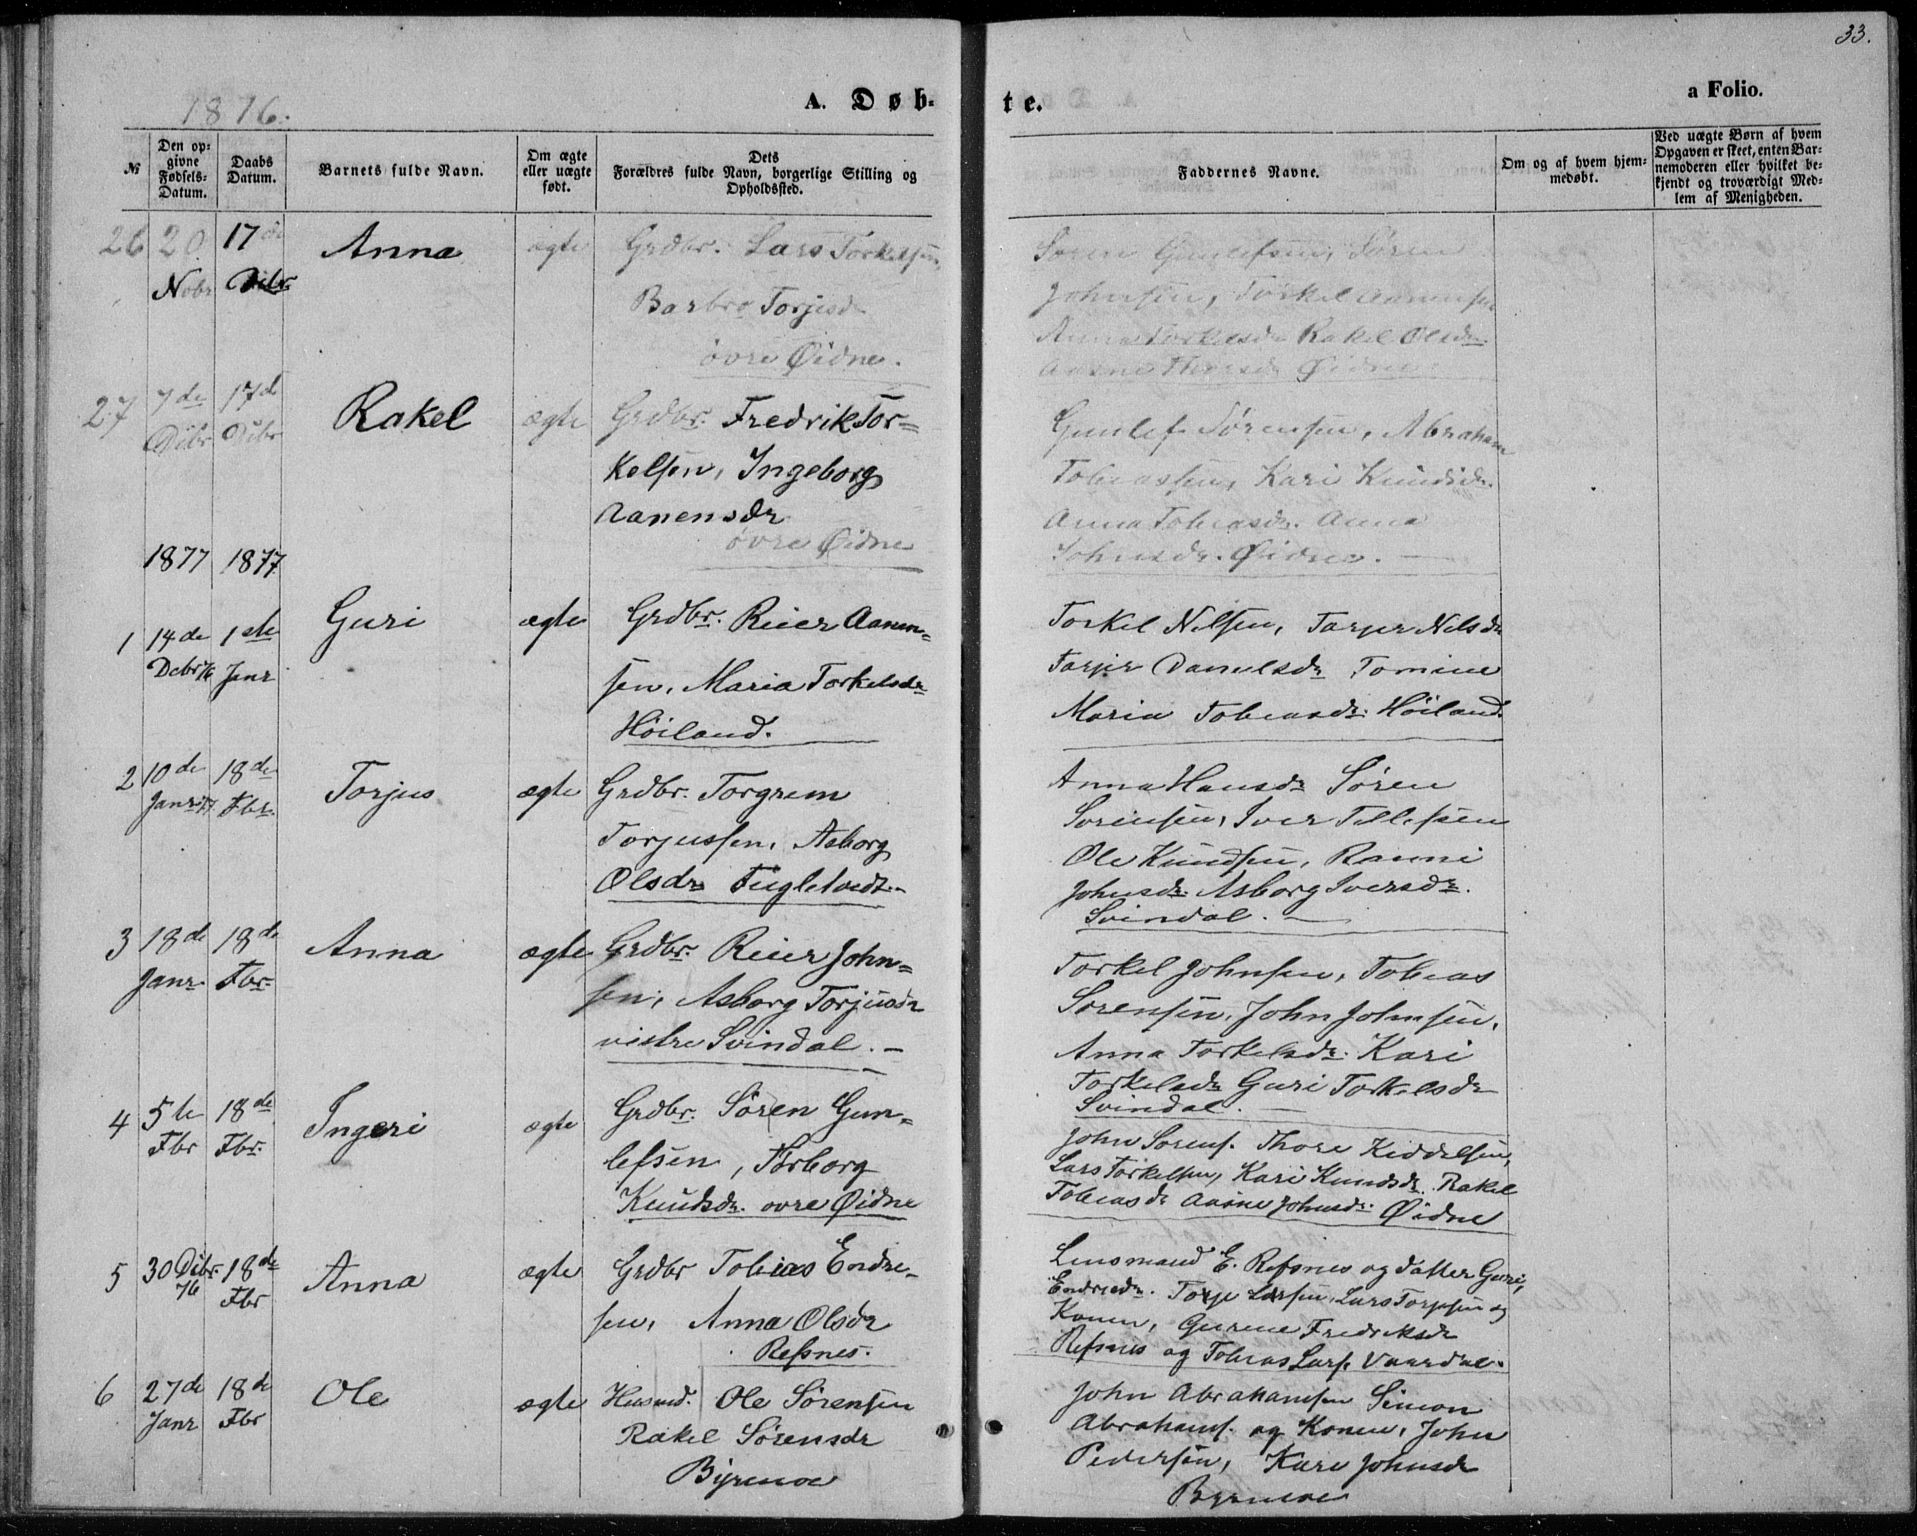 33.
1876.
A. Døb-
te.
a Folio.
№
Den op-
givne
Fødsels-
Datum.
Daabs
Datum.
Barnets fulde Navn.
Om ægte
eller uægte
født.
Dets
Forældres fulde Navn, borgerlige Stilling og
Opholdssted.
Faddernes Navne.
Om og af hvem hjem-
medøbt.
Ved uægte Børn af hvem
Opgaven er skeet, enten Bar-
nemoderen eller hvilket be-
kjendt og troværdigt Med-
lem af Menigheden.
26 20 Nobr
17de Dcbr
Anna
ægte
Grdbr. Lars Torkelsen
Barbro Torjusdr
övre Øidne.
Søren Gunlefsen, Søren
Johnsen, Torkel Aanensen
Anna Torkelsdr Rakel Olsdr
Øidne
27 7de Dcbr
17de Dcbr
Rakel
ægte
Grdbr. Fredrik Tor-
kelsen, Ingeborg
Aanensdr
övre Øidne
Gunlef Sørensen, Abraham
Tobiassen, Kari Knudsdr.
Anna Tobiasdr. Anna
Johnsdr. Øidne. —
1877 1877
1 14de Debr 76
1ste Janr
Guri
ægte
Grdbr. Reier Aanen-
sen, Maria Torkelsdr
Höiland.
Torkel Nilsen, Tarjer Nilsdr
Tarjer Danielsdr Tomine
Maria Tobiasdr. Höiland.
2 10de Janr 77
18de Fbr.
Torjus
ægte
Grdbr. Torgrem
Torjussen, Asborg
Olsdr Fugletvedt.
Anna Hansdr Søren
Sörensen, Iver Tellefsen
Ole Knudsen, Ranni
Johnsdr. Asborg Iversdr.
Svindal. —
3 18de Janr.
18de Fbr.
Anna
ægte
Grdbr. Reier John-
sen, Asborg Torjusdr
vestre Svindal. —
Torkel Johnsen, Tobias
Sørensen, John Johnsen,
Anna Torkelsdr. Kari
Torkelsdr Guri Torkelsdr
Svindal. —
4 5te Fbr
18de Fbr.
Ingeri
ægte
Grdbr. Sören Gun-
lefsen, Torborg
Knudsdr. ovre Øidne
John Sörens. Thore Kiddelsen,
Lars Torkelsen, Kari Knudsdr. Rakel
Tobiasdr Aasne Johnsdr. Øidne
5 30 Dcbr. 76
18de Fbr
Anna
ægte
Grdbr Tobias Endre-
sen, Anna Olsdr
Refsnes.
Lensmand E. Refsnes og datter Guri,
Endresdr. Torje Larsen, Lars Torjesen og
Konen, Gurine Fredriksdr
Refsnes og Tobias Lars. Vaardal.
6 27de Janr
18de Fbr
Ole
ægte
Husmd. Ole Sørensen
Rakel Sörensdr
Byremoe
John Abrahamsen Simon
Abrahams. og Konen, John
Pedersen, Kari Johnsdr
Byremoe